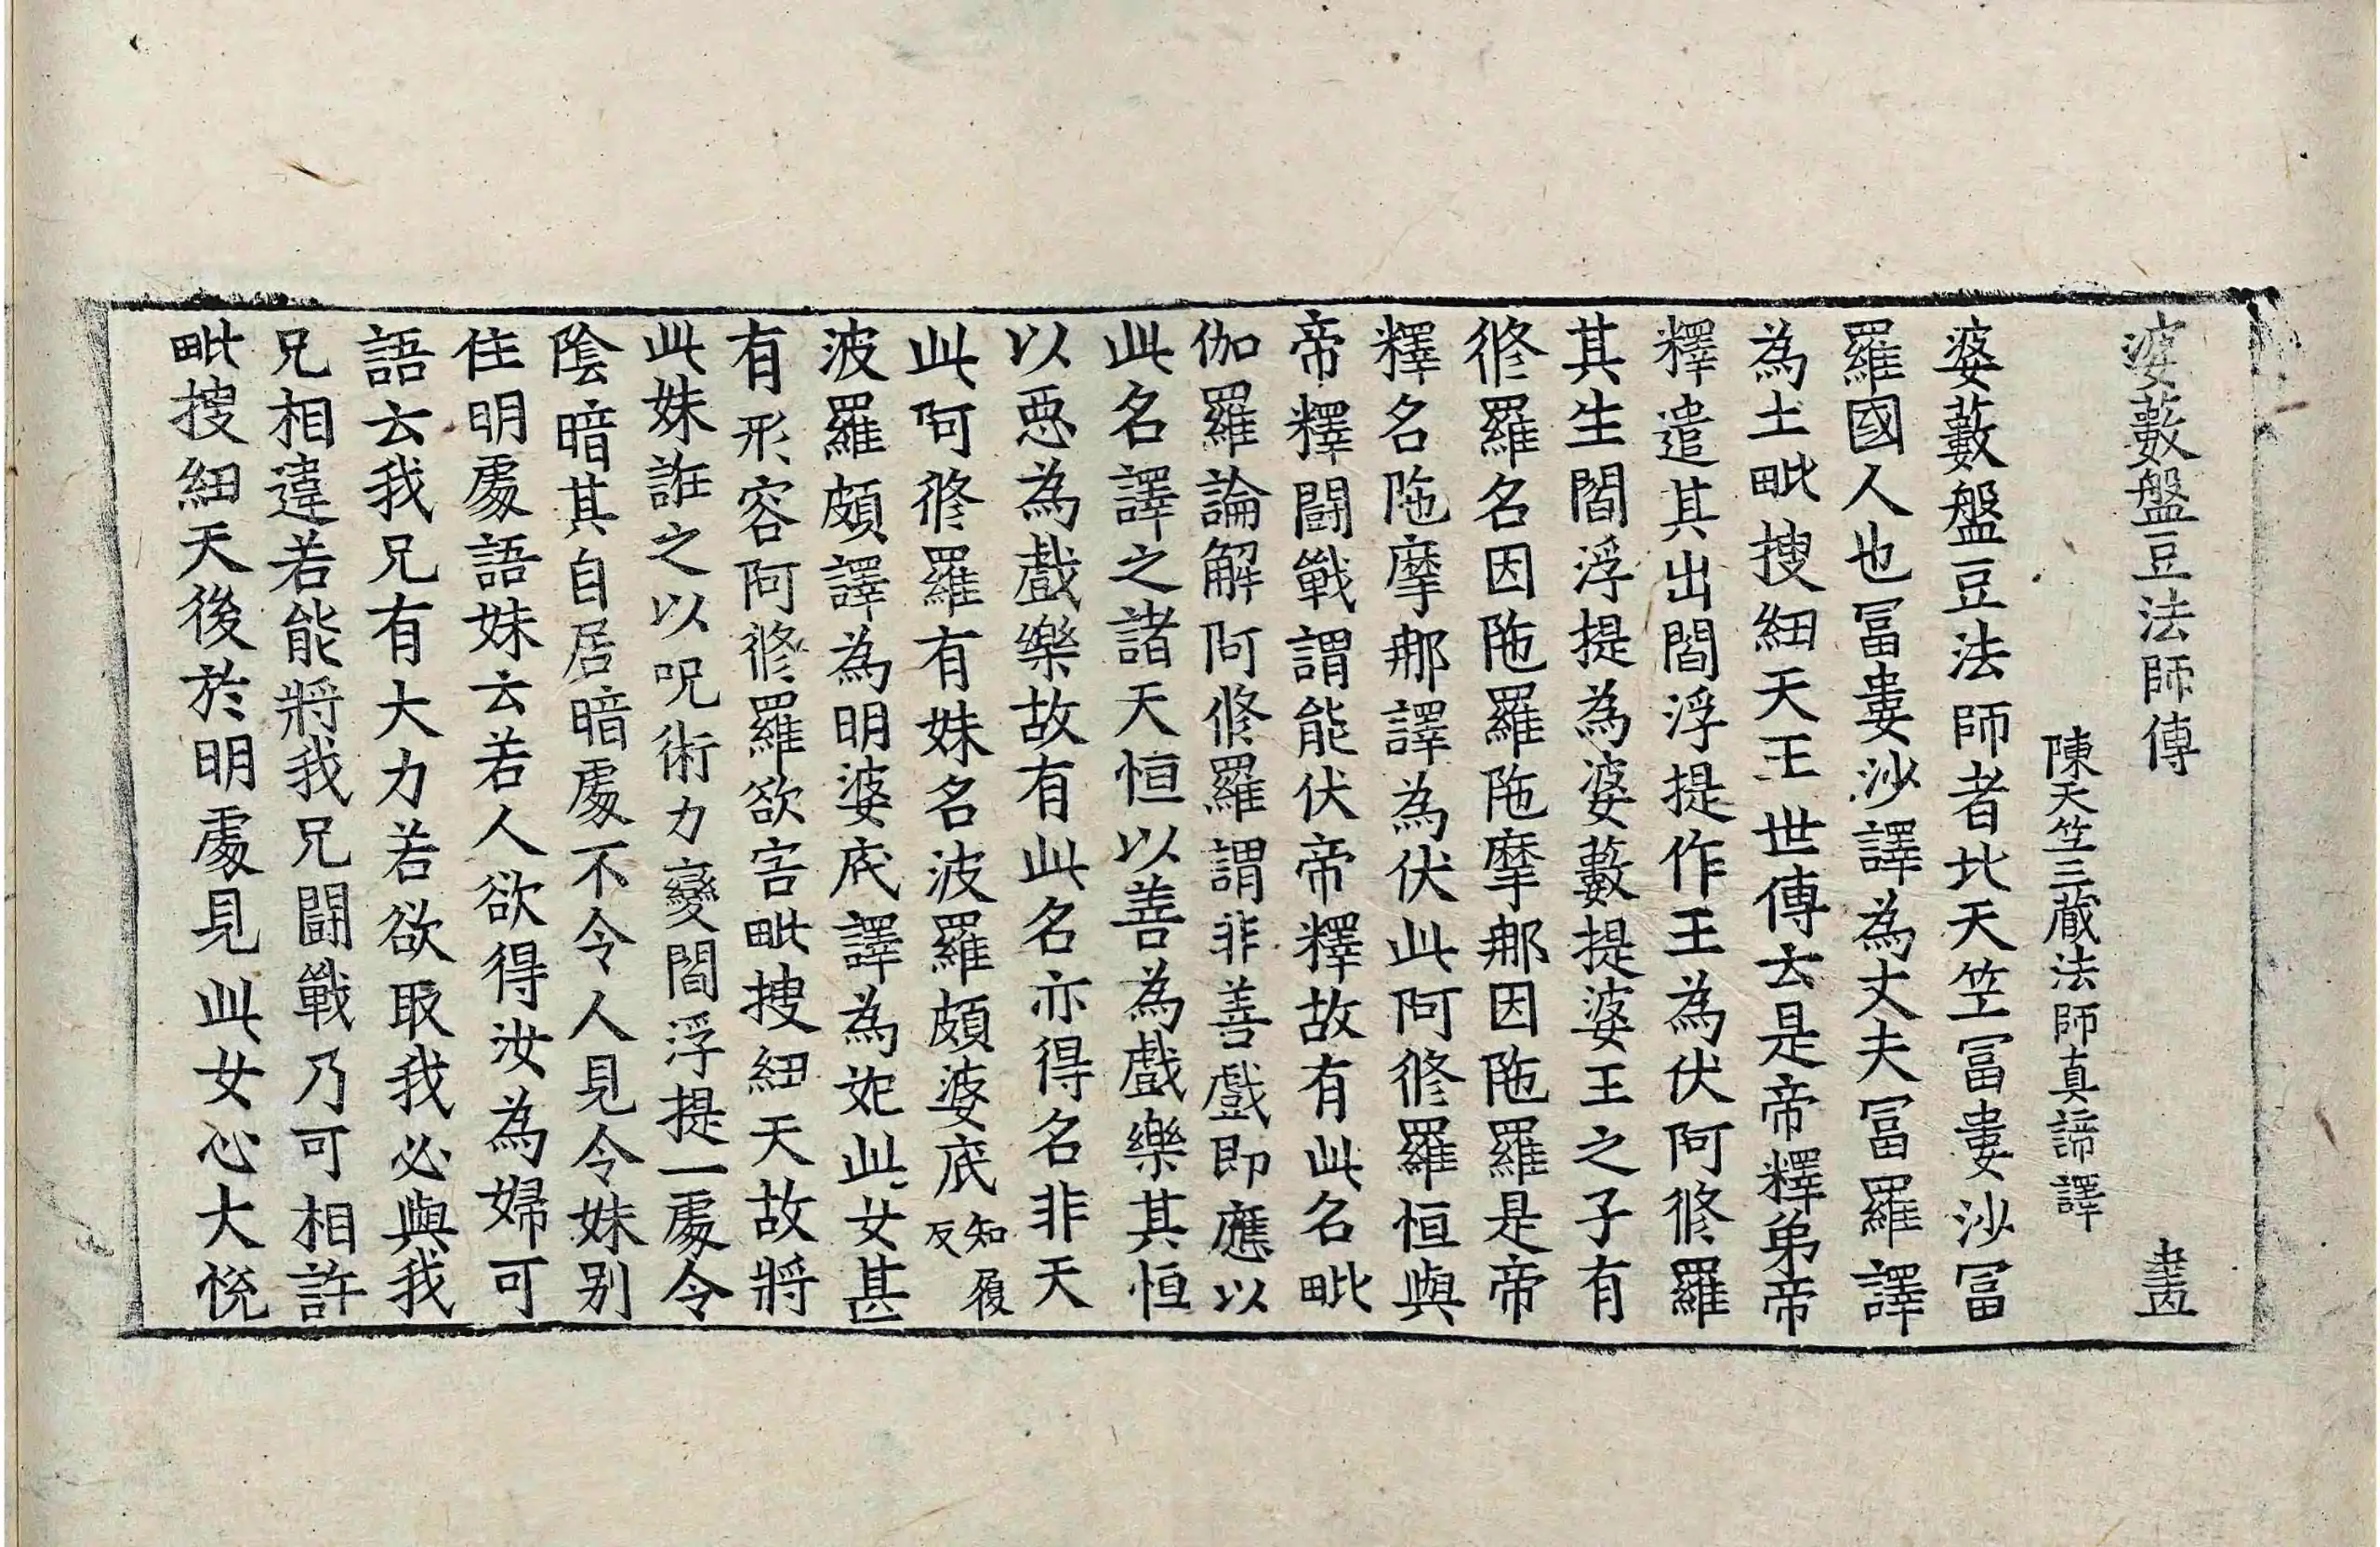 婆藪盤豆法師傳 畫
陳天竺三藏法師真諦譯
婆藪盤豆法師者北天竺冨婁沙冨
羅國人也冨婁沙譯為丈夫冨羅譯
為土毗搜紐天王世傳去是帝釋弟帝
釋遣其出閻浮提作王為伏阿修羅
其生閻浮提為婆藪提婆王之子有
修羅名因陁羅陁摩那因陁羅是帝
釋名陁摩那譯為伏此阿修羅恒與
帝釋鬪戰謂能伏帝釋故有此名毗
伽羅論解阿修羅謂非善戲即應以
此名譯之諸天恒以善為戲樂其恒
以惡為戲樂故有此名亦得名非天
此阿修羅有妹名波羅頗婆底知履反
波羅頗譯為明婆底譯為妃此女甚
有形容阿修羅欲害毗搜紐天故將
此妹誑之以呪術力變閻浮提一處令
陰暗其自居暗處不令人見令妹別
住明處語妹云若人欲得汝為婦可
語云我兄有大力若欲取我必與我
兄相違若能將我兄鬪戰乃可相許
毗搜紐天後於明處見此女心大悅